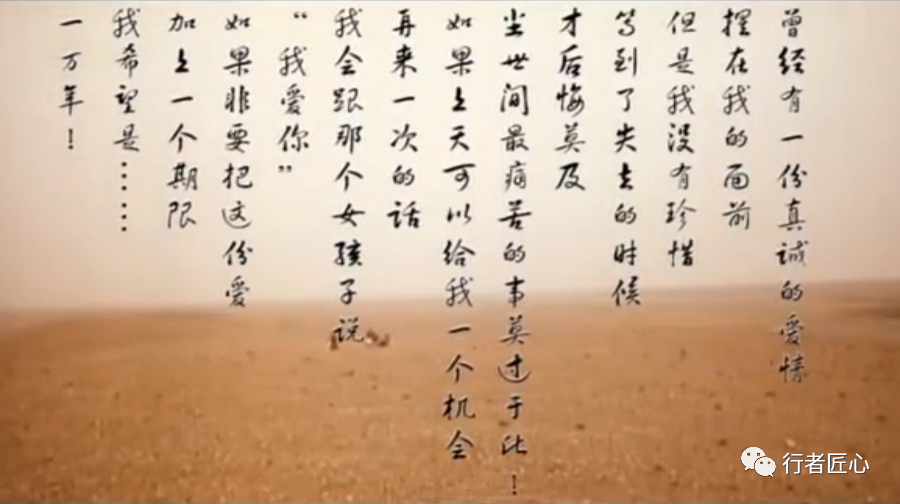 曾经有一份真诚的爱情
摆在我的面前
但是我没有珍惜
等到了失去的时候
才后悔莫及
尘世间最痛苦的事莫过于此！
如果上天可以给我一个机会
再来一次的话
我会跟那个女孩子说
“我爱你”
如果非要把这份爱
加上一个期限
我希望是……
一万年！
行者匠心